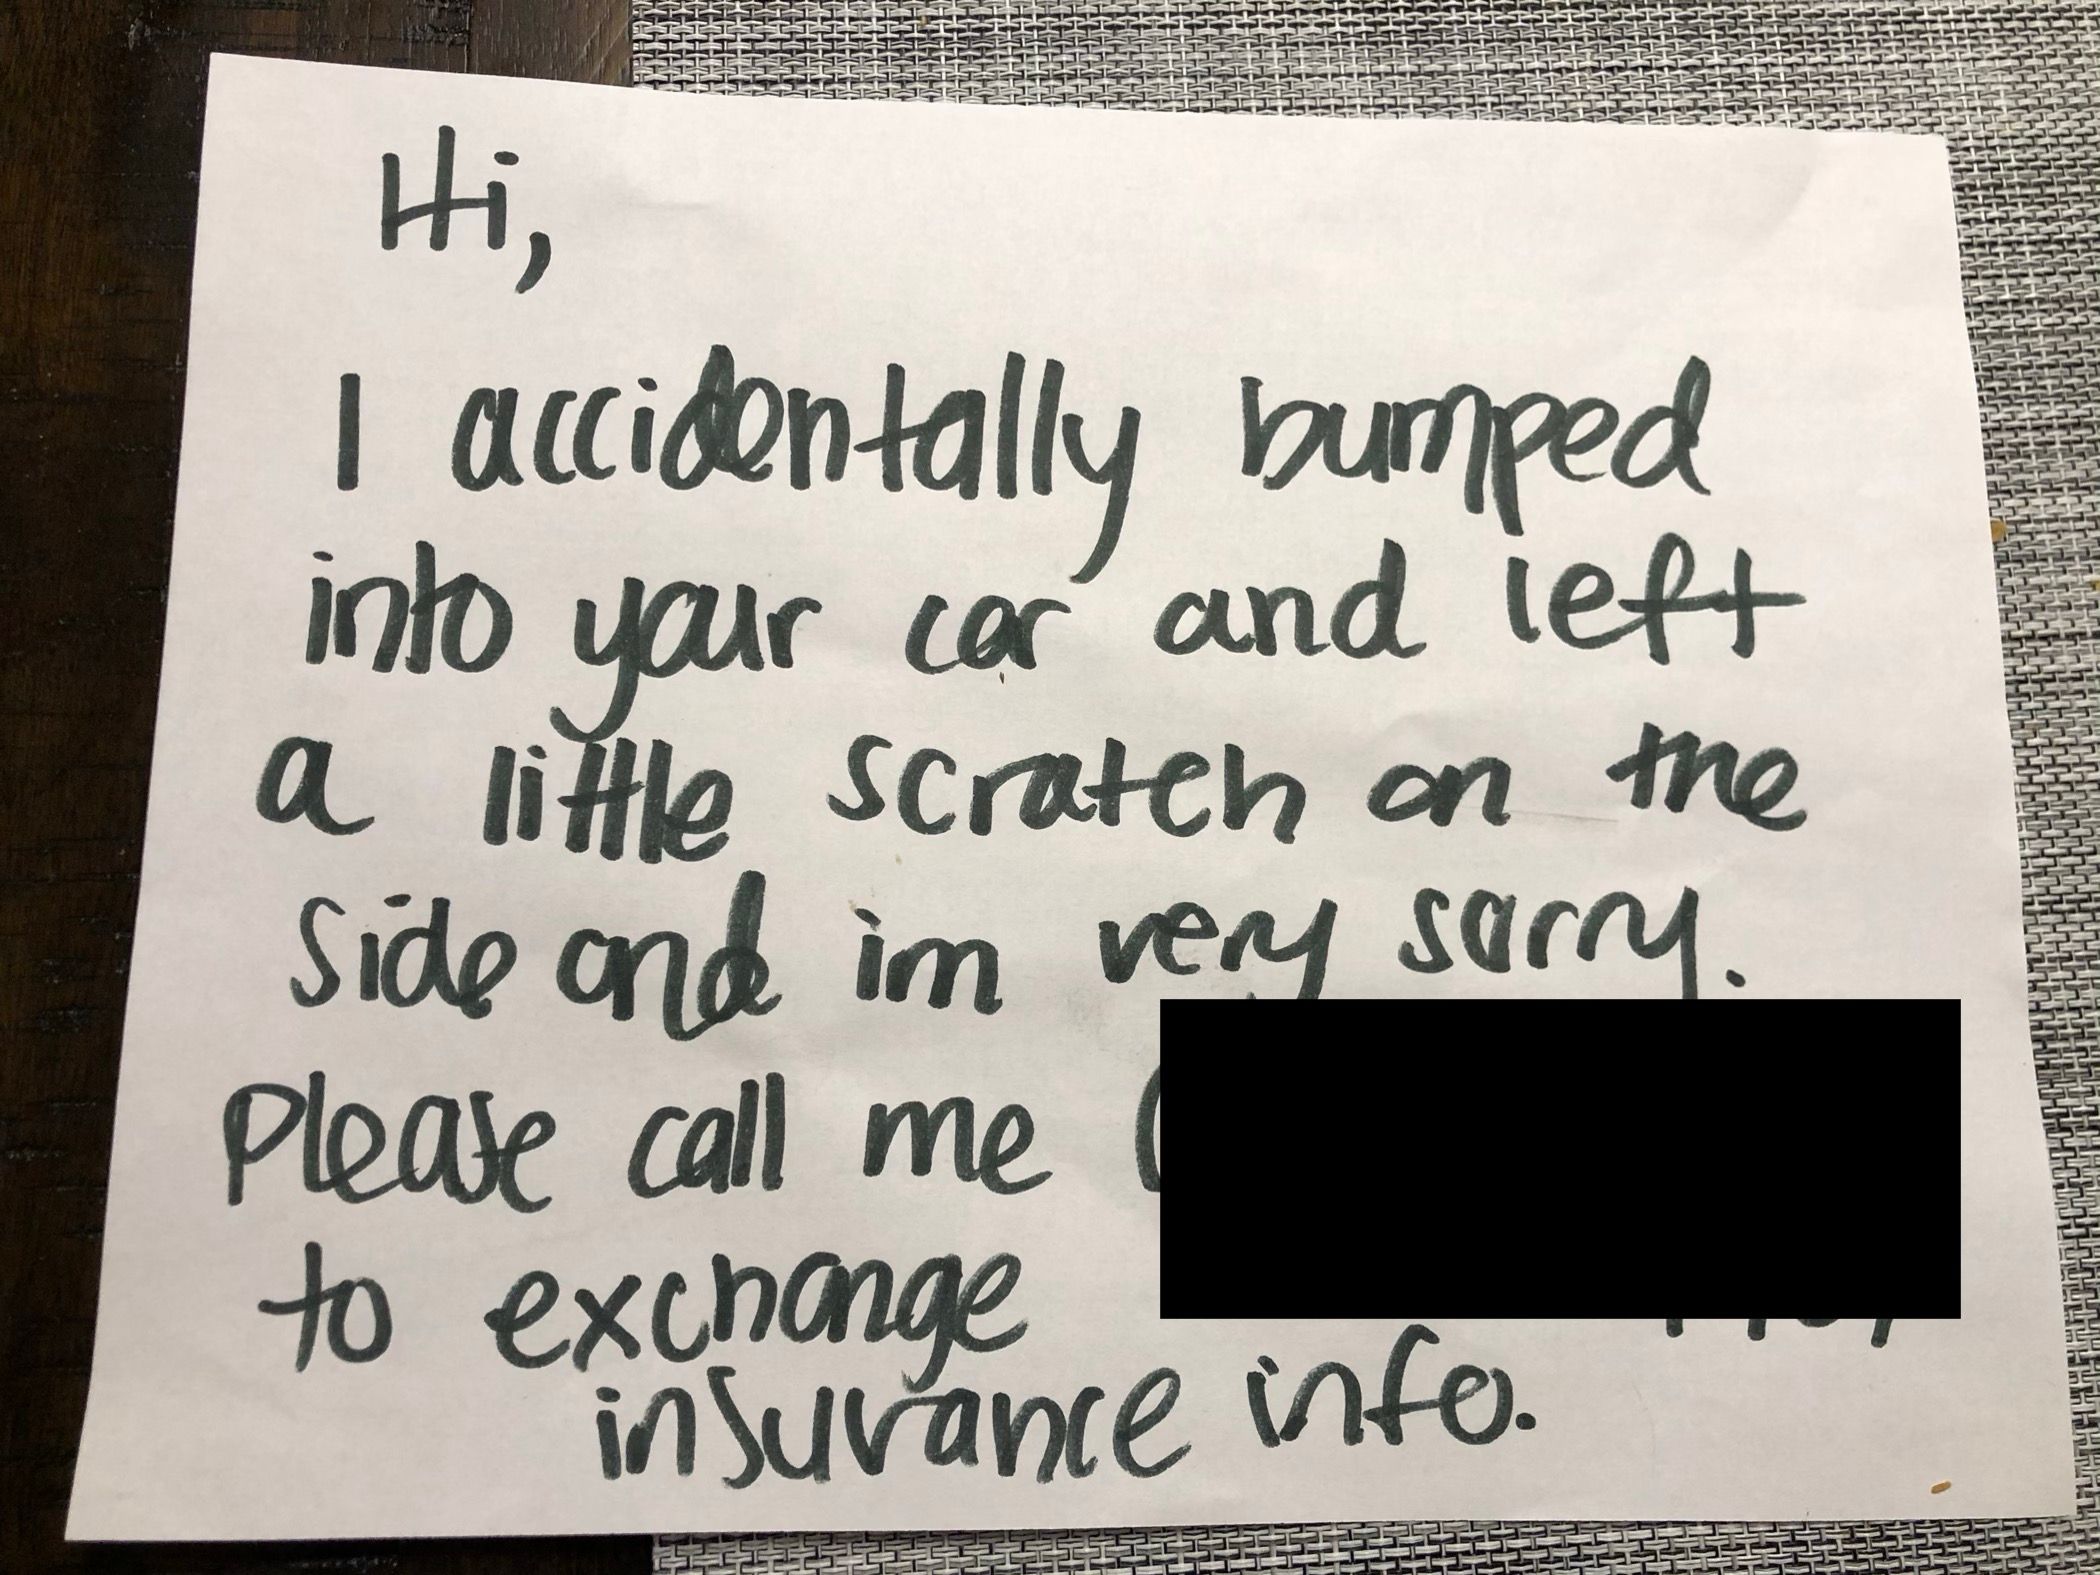 Hi,
I accidentally bumped
into your car and left
a little scratch on the
side and im very sorry.
Please call me (
to exchange
insurance info.